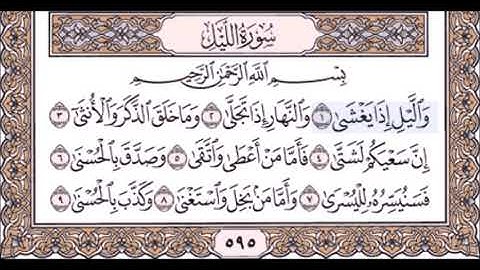 سُورَةُ اللَّيْلِ
بِسْمِ اللَّهِ الرَّحْمَٰنِ الرَّحِيمِ
وَٱلَّيْلِ إِذَا يَغْشَىٰ ١ وَٱلنَّهَارِ إِذَا تَجَلَّىٰ ٢ وَمَا خَلَقَ ٱلذَّكَرَ وَٱلْأُنثَىٰٓ ٣
إِنَّ سَعْيَكُمْ لَشَتَّىٰ ٤ فَأَمَّا مَنْ أَعْطَىٰ وَٱتَّقَىٰ ٥ وَصَدَّقَ بِٱلْحُسْنَىٰ ٦
فَسَنُيَسِّرُهُۥ لِلْيُسْرَىٰ ٧ وَأَمَّا مَنۢ بَخِلَ وَٱسْتَغْنَىٰ ٨ وَكَذَّبَ بِٱلْحُسْنَىٰ ٩
٥٩٥